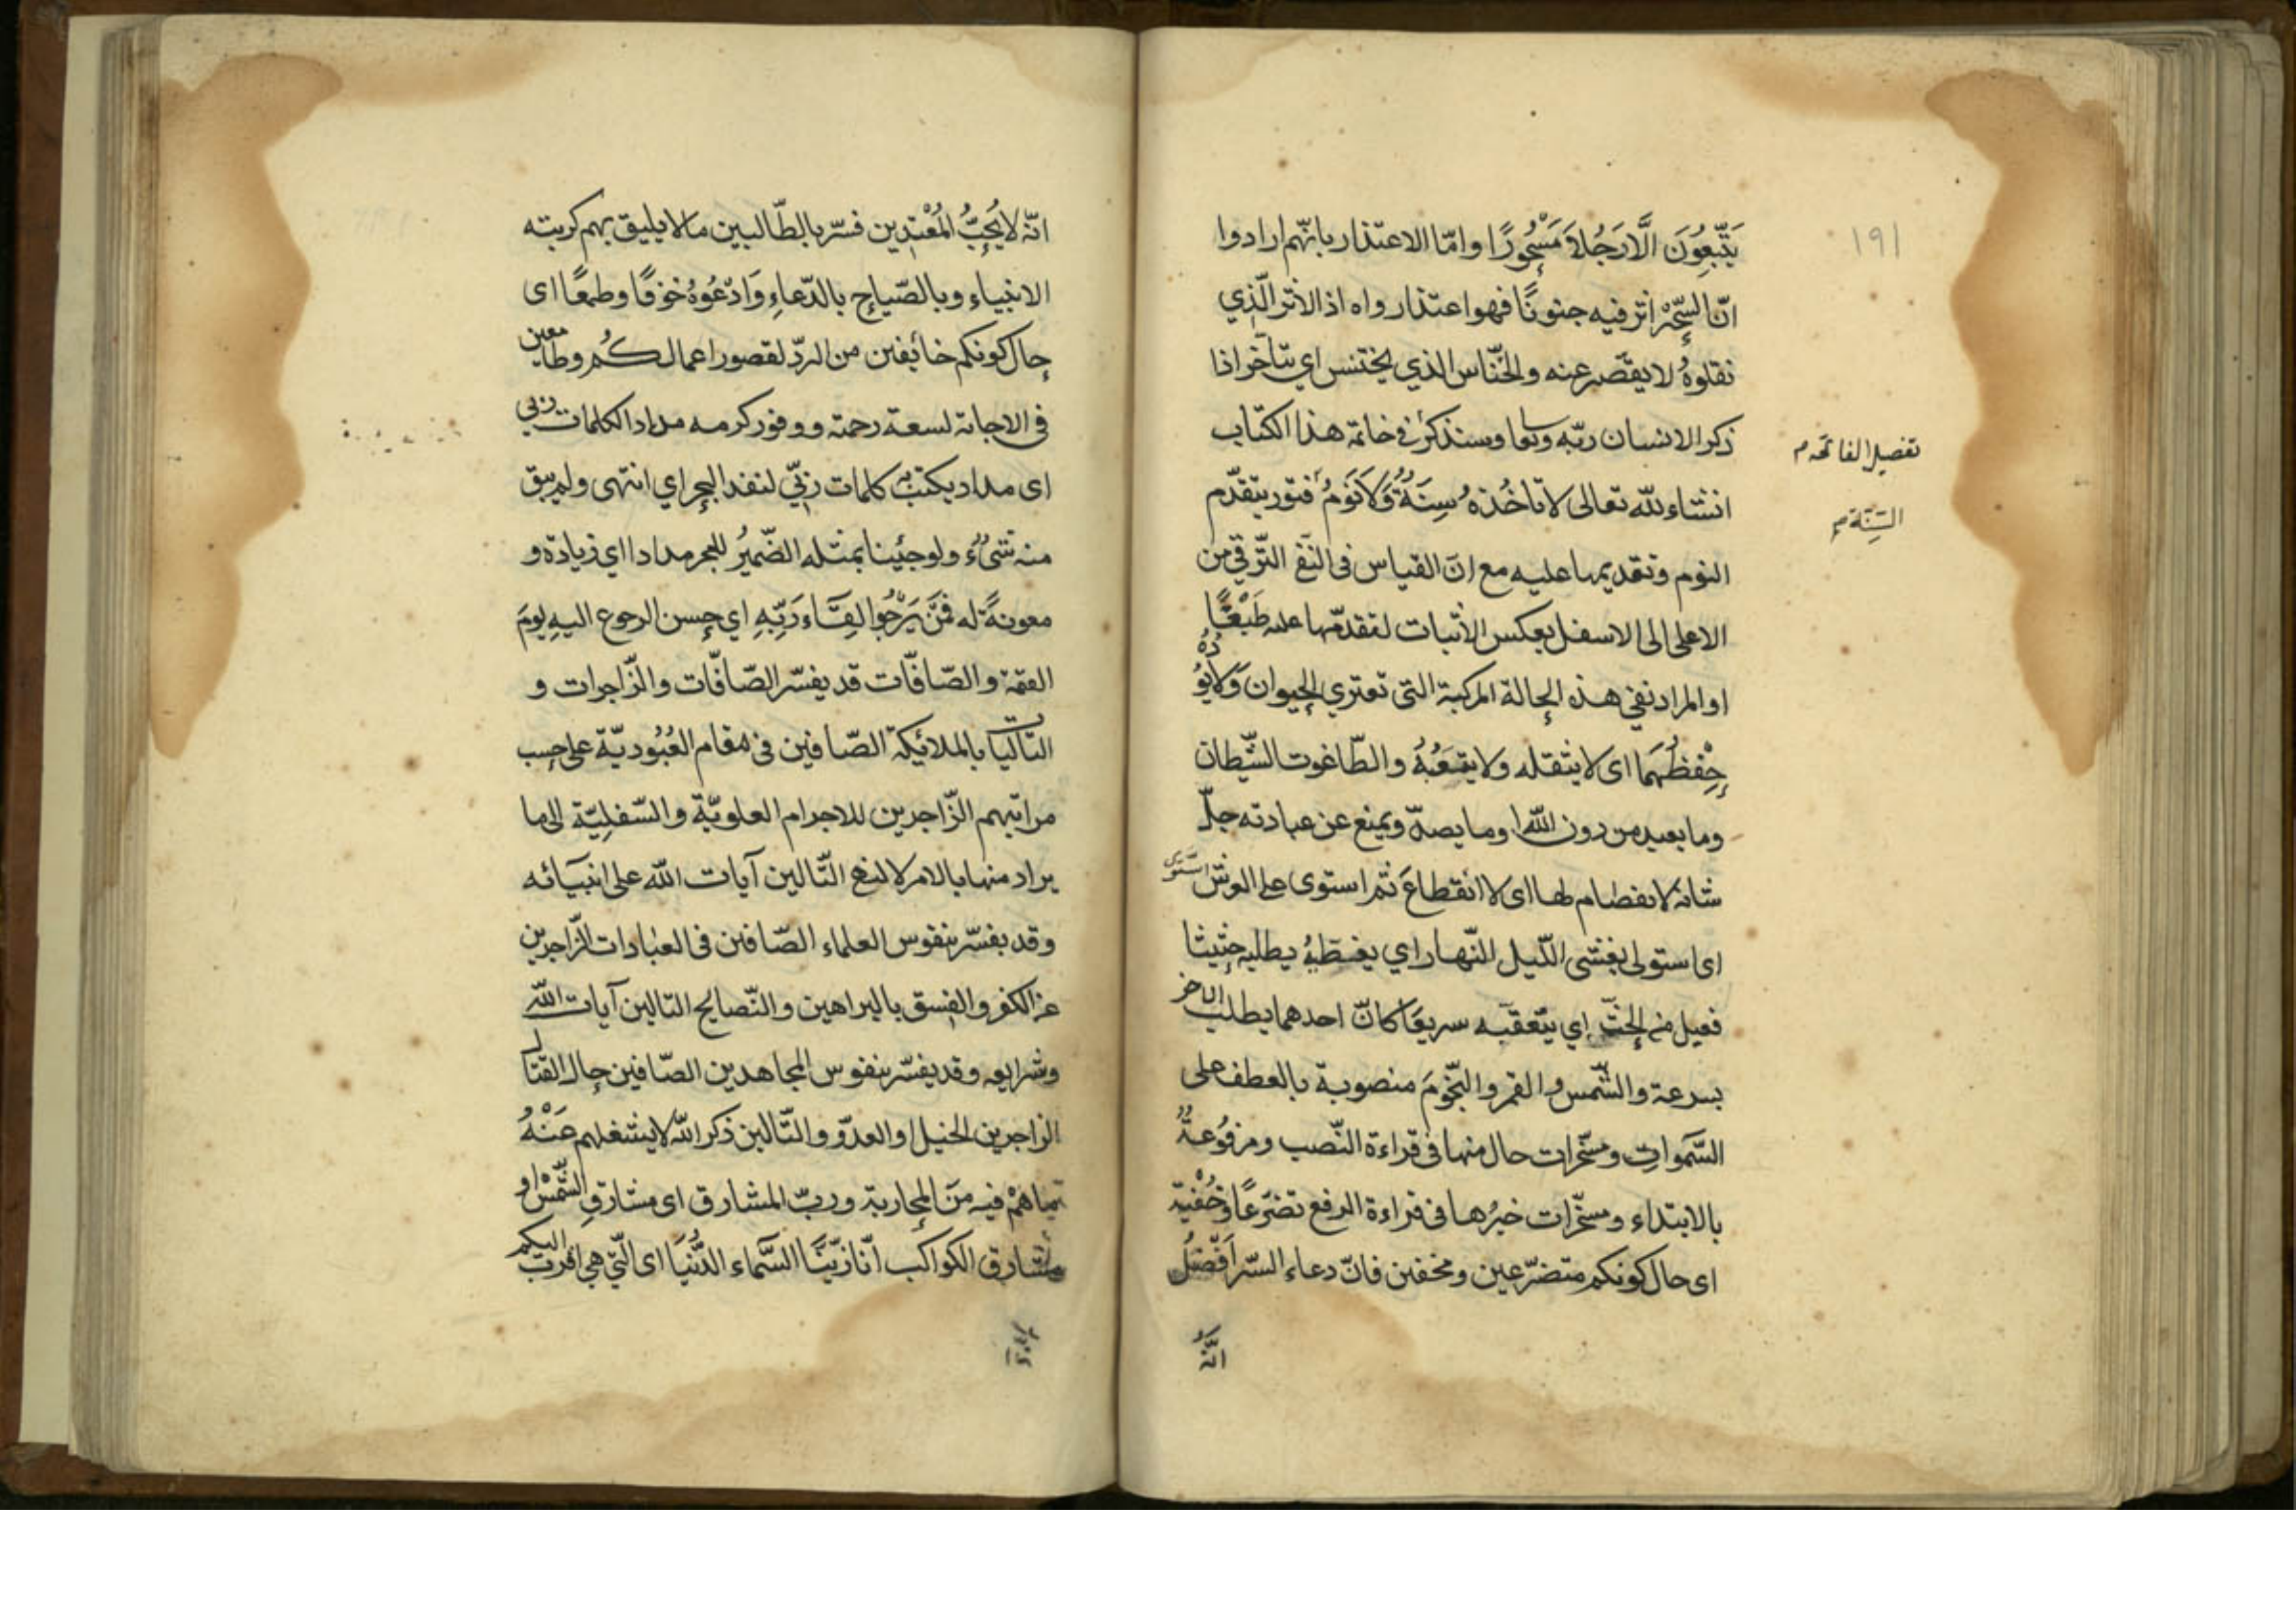 ١٩١
يَتَّبِعُونَ الَّا رَجُلاً مَسْحُورًا وامّا الاعتذار بانّهم ارادوا
انّ السِّحْرَ اثر فيه جنونًا فهو اعتذار واه اذ الاثر الّذي
نقلوهُ لا يقصّر عنه والخنّاس الذي يختنس اي يتأخر اذا
ذكر الانسان ربّه وسنذكره في خاتمة هذا الكتاب
تفصيل الفاتحه م
انشاء لله تعالى لا تاخُذهُ سِنَةٌ وَّلاَ نَوْمٌ فتور يتقدّم
السِّنَة م
النوم وتقديمها عليه مع انّ القياس فى النّفى التّرقى من
الاعلى الى الاسفل بعكس الاثبات لتقدّمها عليه طَبْعًا
او المراد نفى هذه الحالة المركبة التى تعتري الحيوان وَلاَيَؤُدُهُ
حِفْظُهمَا اى لا يثقله ولا يتعبُهُ والطّاغوت الشّيطان
وما يعبد من دون الله او ما يصدّ ويمنع عن عبادته جلّ
شانه لا انفصام لها اى لا انقطاعَ ثم استوى على العرش استوى
اى استولى يغشى اللّيل النّهار اي يغطّيهُ يطلبه حثيثا
فعيل من الحثّ اي يتعقّبه سريعًا كانّ احدهما يطلب الاخر
بسرعة والشّمس والقمر والنّجومَ منصوبة بالعطف على
السّموات ومسخّرات حال منها فى قراءة النّصب ومرفوعةٌ
بالابتداء ومسخّرات خبرُها فى قراءة الرفع تضرّعًا وخُفْية
اى حال كونكم متضرّعين ومخفين فانّ دعاء السّر افضلُ
انّهُ
انّه لا يُحِبُّ المُعْتدِين فسّر بالطّالبين ما لا يليق بهم كرتبة
الانبياء وبالصّياح بالدّعاءِ وَادْعُوهُ خوفًا وطمعًا اى
حال كونكم خائفين من الردّ لقصور اعمالكُم وطامعين
فى الاجابة لسعة رحمته ووفور كرمه مدادا لكلمات ربى
اى مداد يكتب به كلمات ربّي لنفد البحر اي انتهى ولم يبق
منه شىءٌ ولو جئنا بمثله الضّميرُ للبحر مدادا اي زيادة و
معونةً له فمَن يَرْجُوا لِقَاء رَبِّهِ اي حسن الرجوع اليه يومَ
القيمة والصّافّات قد يفسّر الصّافّات والزّاجرات و
التّاليات بالملائكة الصّافين فى مقام العُبُوديّة على حسب
مراتبهم الزّاجرين للاجرام العلويّة والسّفليّة الى ما
يراد منها بالامر الالهى التّالين آيات الله على انبيآئه
وقد يفسّر بنفوس العلماء الصّافين فى العبادات الزّاجرين
عن الكفر والفسق بالبراهين والنّصايح التالين آيات الله
وشرايعه وقد يفسّر بنفوس المجاهدين الصّافين حال القتال
الزاجرين الخيل او العدوّ والتّالين ذكر الله لا يشغلهم عَنْهُ
ما هُمْ فيه مِنَ المحاربة وربّ المشارق اى مشارق الشَّمْس او
مشارق الكواكب انّا زيّنَّا السَّماء الدُّنْيَا اى الّتي هي اقرب اليكم